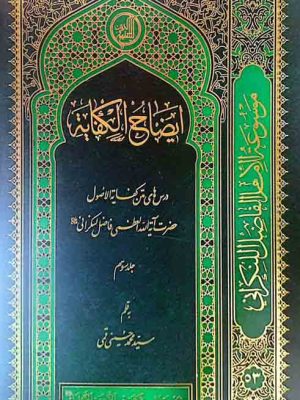 ایضاح الکفایة
درس های متن کفایة الاصول
حضرت آیة الله العظمی فاضل لنکرانی
جلد سوم
بقلم
سید محمد حسینی قمی
موسوعة الامام الفاضل اللنکرانی
۵۳